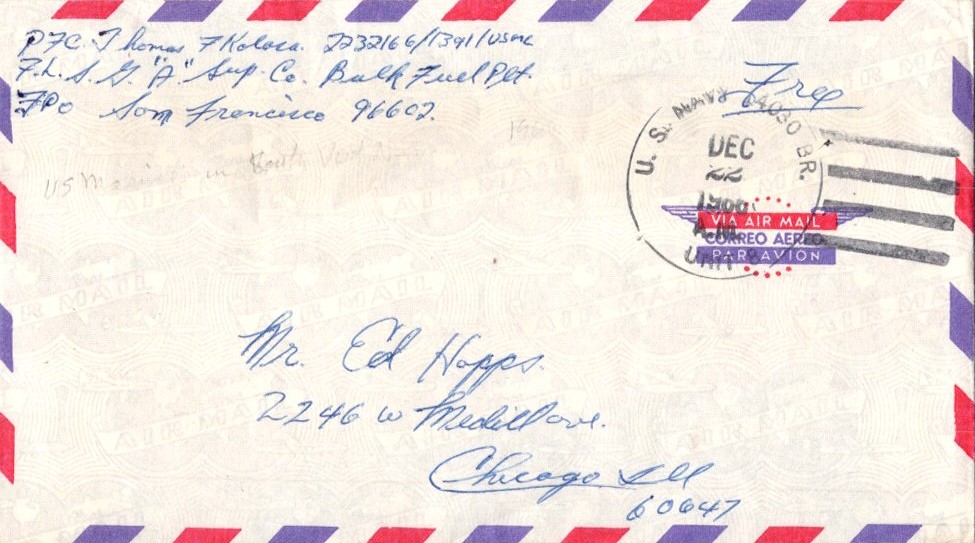 PFC. Thomas F Kolosa. 2232166/1391/USMC
F.L.S.G. "A" Sup. Co. Bulk Fuel Plt.
FPO San Francisco 96602.
Free
U.S. NAVY 14030 BR.
DEC
22
1966
A.M.
UNIT
VIA AIR MAIL
CORREO AEREO
PAR AVION
US Marine in South Viet
Mr. Ed Hopps.
2246 W Medill ave.
Chicago Ill
60647